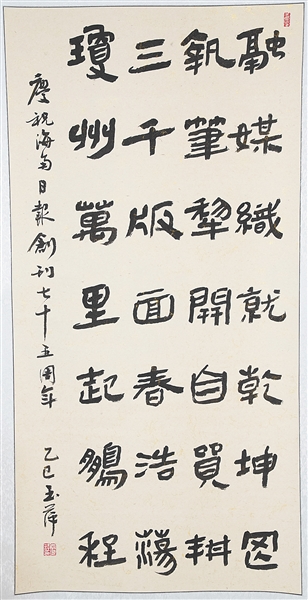 融媒織就乾坤图
執筆犁開自貿耕
三千版面春浩蕩
瓊州萬里起鵬程
慶祝海南日報創刊七十五周年
乙巳玉萍